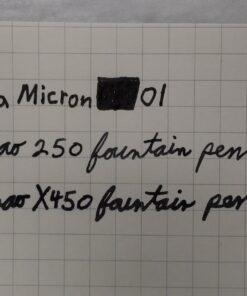 Micron 01
250 fountain pen
X450 fountain pen